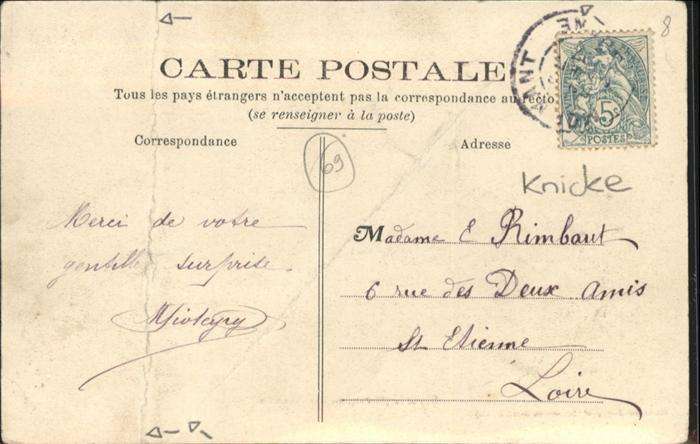 CARTE POSTALE
Tous les pays étrangers n'acceptent pas la correspondance au recto
(se renseigner à la poste)
Correspondance
Adresse
69
8
5
POSTES
NANT
Knicke
Merci de votre
gentille surprise.
Madame E Rimbaut
6 rue des Deux Amis
St Etienne
Loire